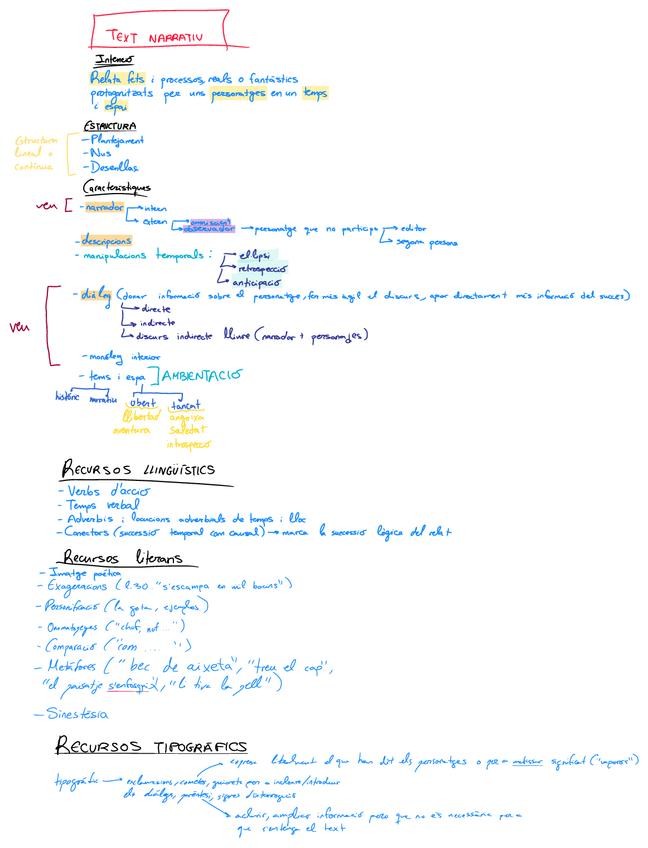 TEXT NARRATIU
Intenció
Relata fets i processos, reals o fantàstics
protagonitzats per uns personatges en un temps
i espai
ESTRUCTURA
Estructura
lineal o
contínua
- Plantejament
- Nus
- Desenllaç
Característiques
veu
- narrador
intern
extern
omniscient
observador
personatge que no participa
editor
segona persona
- descripcions
- manipulacions temporals :
el·lipsi
retrospecció
anticipació
veu
- diàleg (donar informació sobre el personatge, fer més àgil el discurs, apor directament més informació del succés)
directe
indirecte
discurs indirecte lliure (narrador + personatges)
- monòleg interior
- temps i espai
AMBIENTACIÓ
històric
narratiu
obert
tancat
llibertat
aventura
angoixa
soledat
introspecció
RECURSOS LLINGÜÍSTICS
- Verbs d'acció
- Temps verbal
- Adverbis i locucions adverbials de temps i lloc
- Conectors (successió temporal com causal) → marca la successió lògica del relat
Recursos literaris
- Imatge poètica
- Exageracions (l.30 "s'escampa en mil bocins")
- Personificació (la gota, exemples)
- Onomatopeyes ("chof, nuf ...")
- Comparació ("com .... ")
- Metàfores (" bec de aixeta", "treu el cap",
"el paisatge s'enfosqueix", "li tiva la pell")
- Sinestèsia
RECURSOS TIPOGRÀFICS
expresa literalment el que han dit els personatges o per a matissar significat ("vaporós")
tipogràfic → exclamacions, cometes, guionets per a incloure/introduir
els diàlegs, parèntesi, signes d'interrogació
aclarir, ampliar informació pero que no es necessària per a
que s'entenga el text